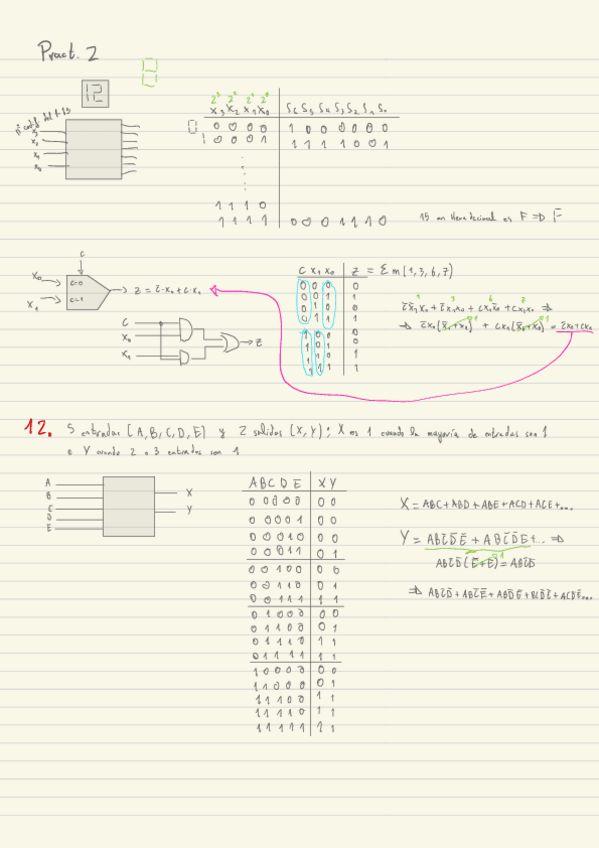 Pract. 2
12
nº config del 0-15
X₃
X₂
X₁
X₀
2³ 2² 2¹ 2⁰
X₃ X₂ X₁ X₀ S₆ S₅ S₄ S₃ S₂ S₁ S₀
0 0 0 0 0 1 0 0 0 0 0 0
1 0 0 0 1 1 1 1 1 0 0 1
1 1 1 0
1 1 1 1 0 0 0 1 1 1 0
15 en Hexadecimal es F => F
C
X₀ C=0
X₁ C=1
Z = c̄·X₀ + C·X₁
C
X₀
X₁
Z
C X₁ X₀ Z = Σm(1,3,6,7)
0 0 0 0
0 0 1 1
0 1 0 0
0 1 1 1
1 0 0 0
1 0 1 0
1 1 0 1
1 1 1 1
1 3 6 7
c̄x̄₁x₀ + c̄x₁x₀ + cx₁x̄₀ + cx₁x₀ =>
=> c̄x₀(x̄₁+x₁) + cx₁(x̄₀+x₀) = c̄x₀+cx₁
12. 5 entradas [A, B, C, D, E) y 2 salidas (X, Y); X es 1 cuando la mayoría de entradas son 1
e Y cuando 2 o 3 entradas son 1
A
B
C
D
E
X
Y
A B C D E X Y
0 0 0 0 0 0 0
0 0 0 0 1 0 0
0 0 0 1 0 0 0
0 0 0 1 1 0 1
0 0 1 0 0 0 0
0 0 1 1 0 0 1
0 0 1 1 1 1 1
0 1 0 0 0 0 0
0 1 1 0 0 0 1
0 1 1 1 0 1 1
0 1 1 1 1 1 1
1 0 0 0 0 0 0
1 1 0 0 0 0 1
1 1 1 0 0 1 1
1 1 1 1 0 1 1
1 1 1 1 1 1 1
X = ABC + ABD + ABE + ACD + ACE + ...
Y = ABC̄D̄Ē + ABC̄D̄E + ... =>
ABC̄D̄(Ē+E) = ABC̄D̄
=> ABC̄D̄ + ABC̄Ē + ABD̄Ē